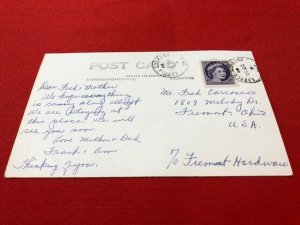 POST CARD
CORRESPONDENCE
MADE IN CANADA
ADDRESS
Dear Fred & Mother
We hope everything
is coming along alright
We are staying at
this place. We will
see you soon.
Love Mother & Dad
Frank & Ann
Thinking of you.
Mr. Fred Carnicelli
1809 Melody Dr.
Fremont, Ohio
U.S.A.
% Fremont Hardware